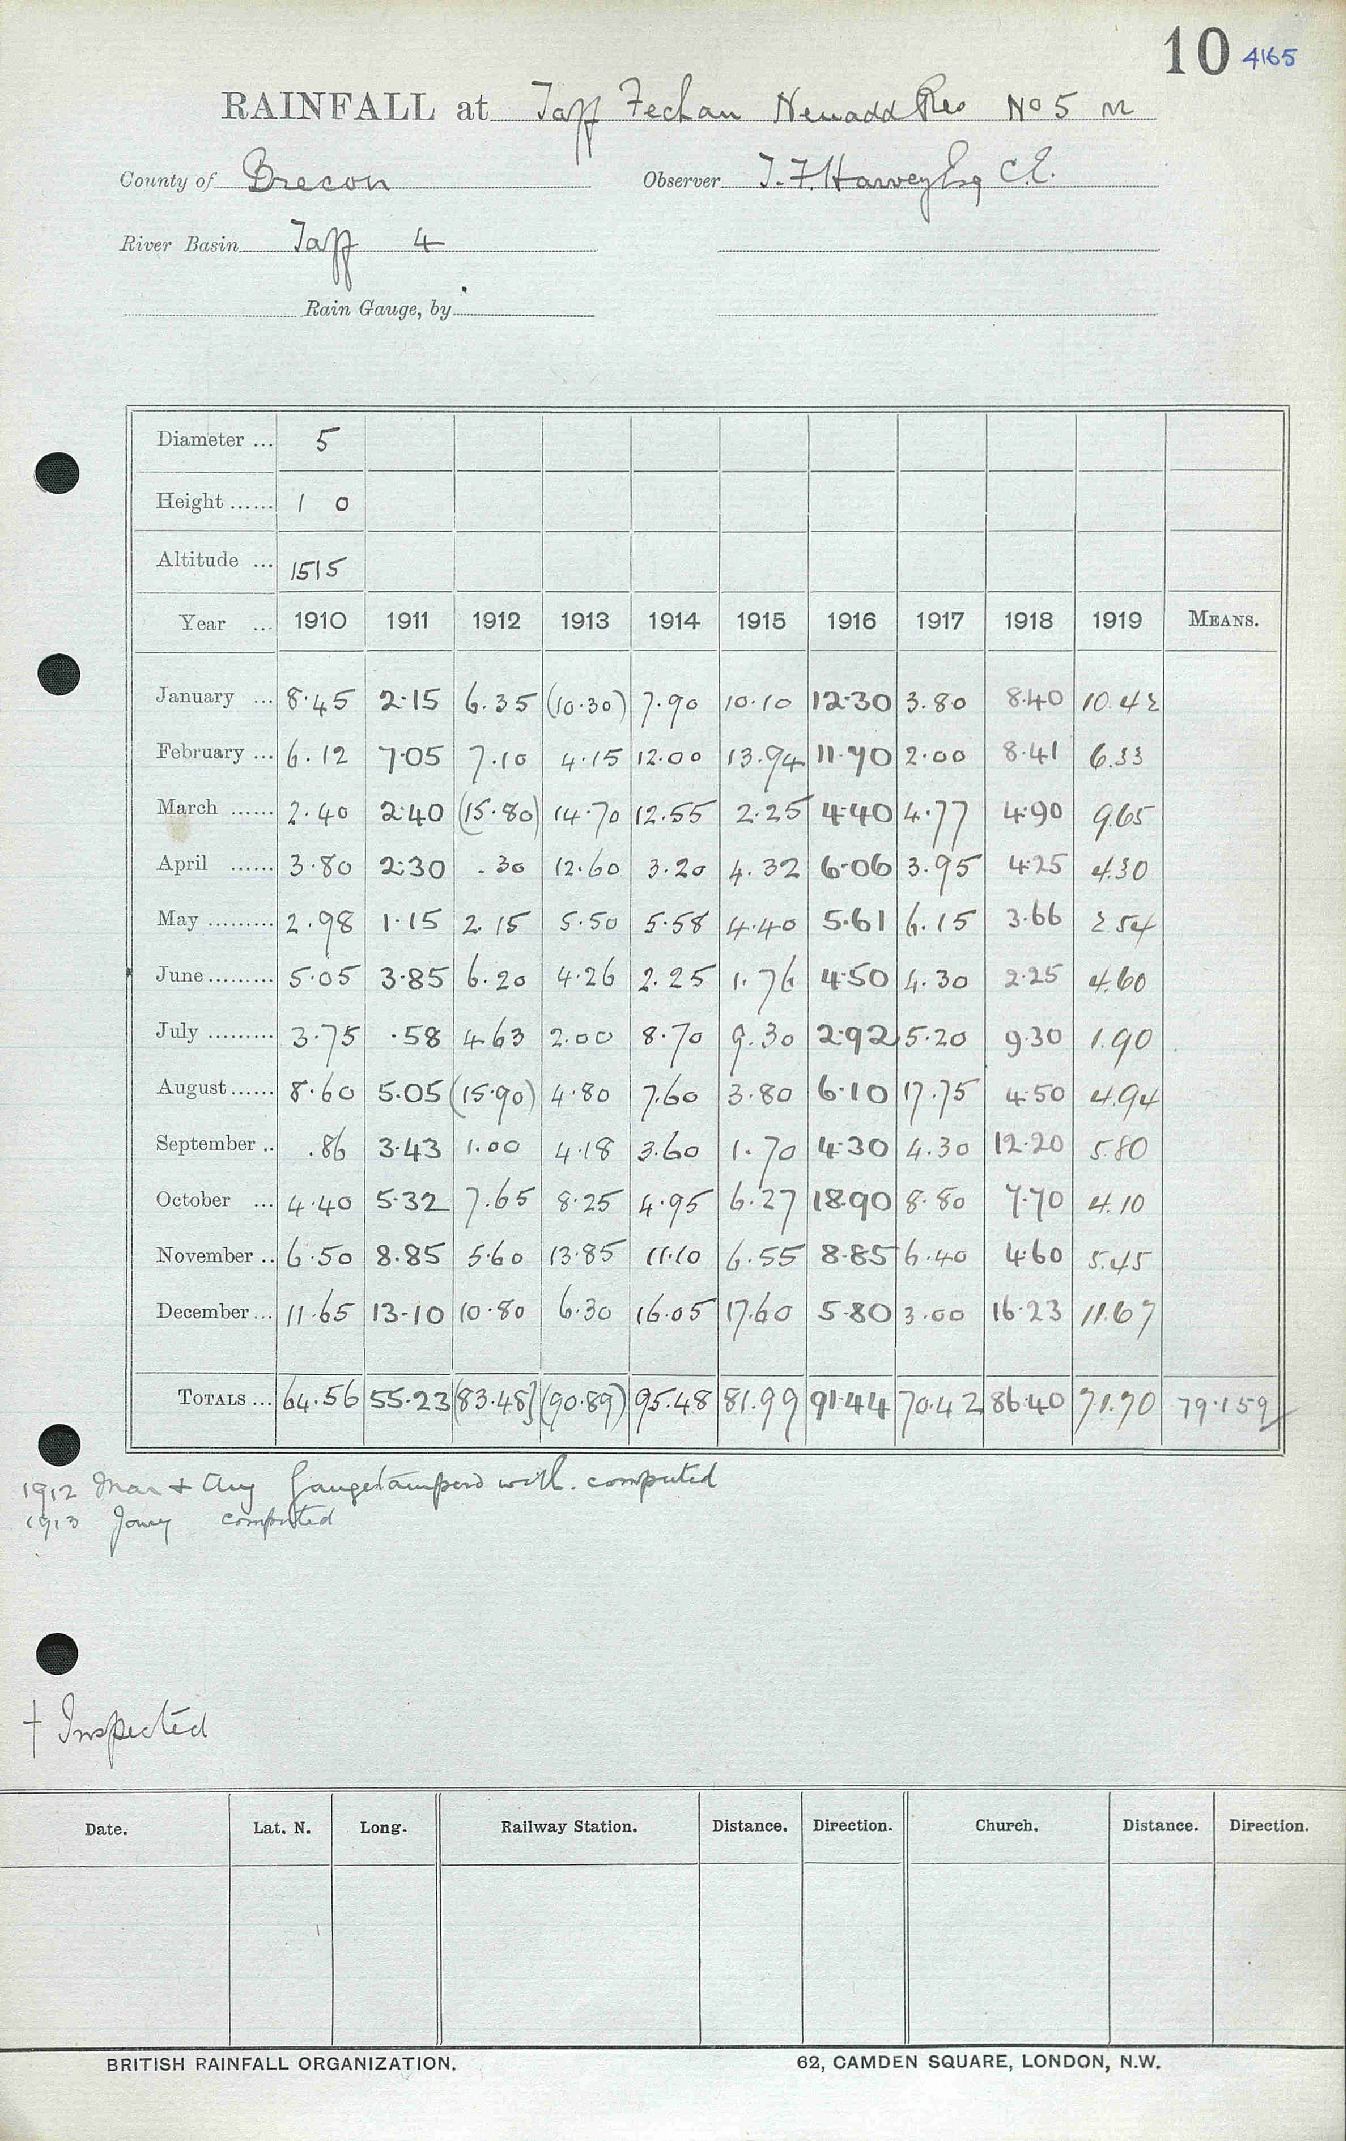 10 4165
RAINFALL at Taff Fechan Neuadd Res No 5 m
County of Brecon Observer T. F. Harvey Esq C.E.
River Basin Taff 4
Rain Gauge, by
Diameter ... 5
Height ...... 1 0
Altitude ... 1515
Year ... 1910 1911 1912 1913 1914 1915 1916 1917 1918 1919 MEANS.
January ... 8.45 2.15 6.35 (10.30) 7.90 10.10 12.30 3.80 8.40 10.42
February ... 6.12 7.05 7.10 4.15 12.00 13.94 11.70 2.00 8.41 6.33
March ...... 2.40 2.40 (15.80) 14.70 12.55 2.25 4.40 4.77 4.90 9.65
April ...... 3.80 2.30 .30 12.60 3.20 4.32 6.06 3.95 4.25 4.30
May ......... 2.98 1.15 2.15 5.50 5.58 4.40 5.61 6.15 3.66 2.54
June ......... 5.05 3.85 6.20 4.26 2.25 1.76 4.50 4.30 2.25 4.60
July ......... 3.75 .58 4.63 2.00 8.70 9.30 2.92 5.20 9.30 1.90
August ...... 8.60 5.05 (15.90) 4.80 7.60 3.80 6.10 17.75 4.50 4.94
September .. .86 3.43 1.00 4.18 3.60 1.70 4.30 4.30 12.20 5.80
October ... 4.40 5.32 7.65 8.25 4.95 6.27 18.90 8.80 7.70 4.10
November .. 6.50 8.85 5.60 13.85 11.10 6.55 8.85 6.40 4.60 5.45
December ... 11.65 13.10 10.80 6.30 16.05 17.60 5.80 3.00 16.23 11.67
TOTALS ... 64.56 55.23 (83.48] (90.89) 95.48 81.99 91.44 70.42 86.40 71.70 79.159
1912 Mar + Aug Gauge tampered with. computed
1913 Jany computed
† Inspected
Date. Lat. N. Long. Railway Station. Distance. Direction. Church. Distance. Direction.
BRITISH RAINFALL ORGANIZATION. 62, CAMDEN SQUARE, LONDON, N.W.